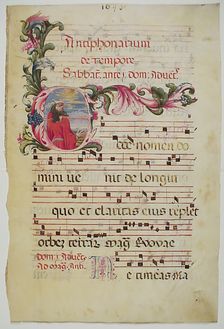 Antiphonarium
de Tempore
Sabbat. ante j. dom. Advet.
cce nomen do
mini ve nit de longin
quo et claritas eius replet
orbez terraz Mag Evovae
dom. j. Advetus
ad Mag. Ant.
Ne timeas Ma